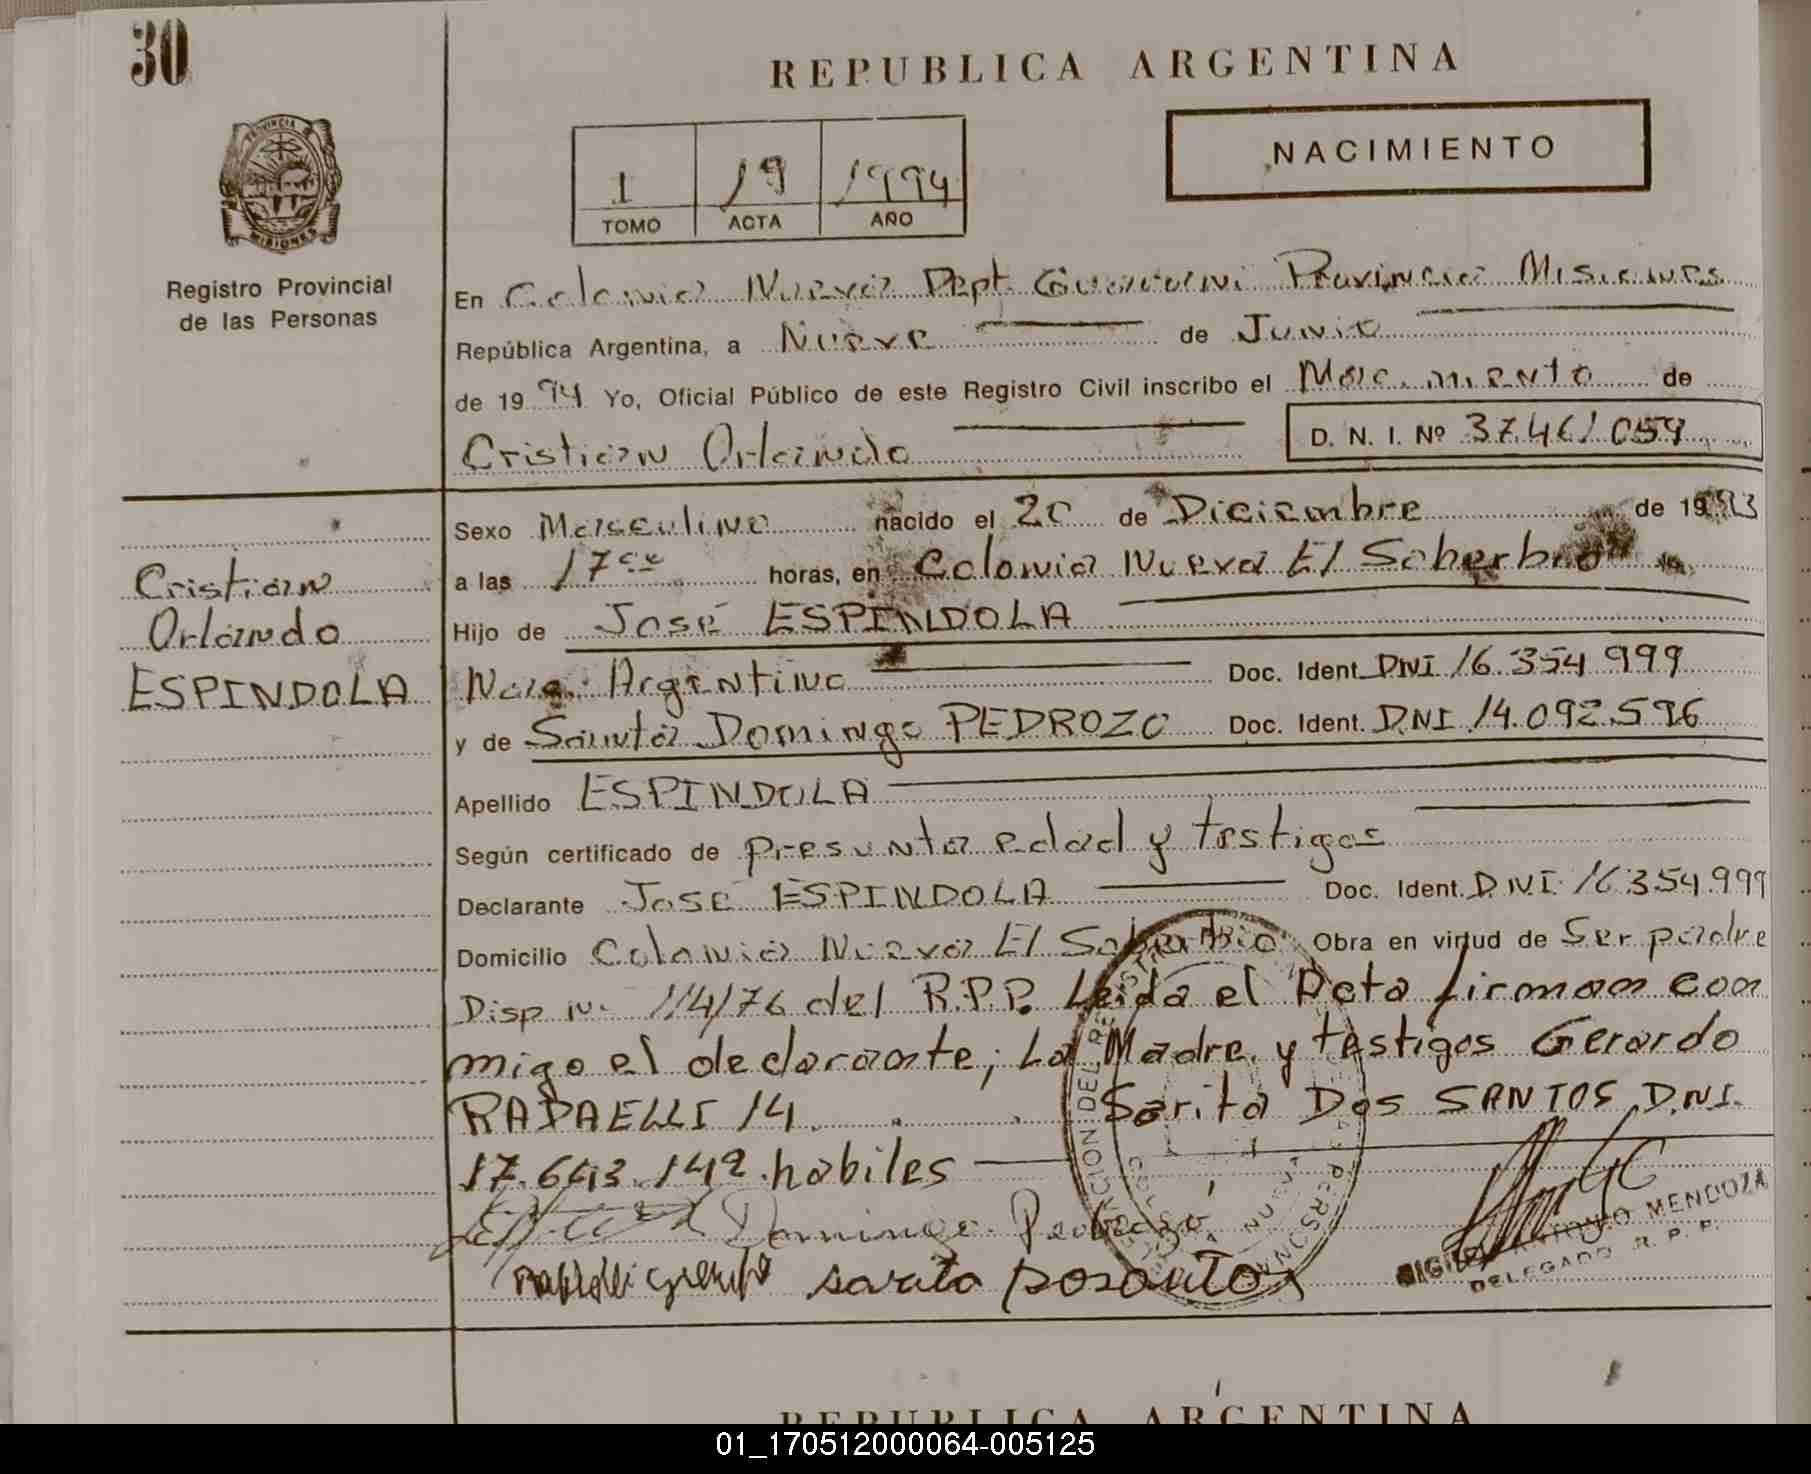 30
REPUBLICA ARGENTINA
PROVINCIA
MISIONES
NACIMIENTO
1 19 1994
TOMO ACTA AÑO
Registro Provincial
de las Personas
En Colonia Nueva Dept. Guarani Provincia Misiones
República Argentina, a Nueve de Junio
de 1994 Yo, Oficial Público de este Registro Civil inscribo el Nacimiento de
Cristian Orlando D. N. I. Nº 37.461.059
Cristian
Orlando
ESPINDOLA
Sexo Masculino nacido el 20 de Diciembre de 1993
a las 17 horas, en Colonia Nueva El Soberbio
Hijo de José ESPINDOLA
Nac. Argentino Doc. Ident. DNI 16.354.999
y de Santa Domingo PEDROZO Doc. Ident. DNI 14.092.596
Apellido ESPINDOLA
Según certificado de presunta edad y testigos
Declarante José ESPINDOLA Doc. Ident. DNI. 16.354.999
Domicilio Colonia Nueva El Soberbio Obra en virtud de Ser padre
Disp N. 114/76 del R.P.P. Leida el Acta firman con
migo el declarante, La Madre y testigos Gerardo
14. Sarita Dos SANTOS D.N.I.
17.643.142 habiles
Domingo
ANTONIO MENDOZA
DELEGADO R. P. P.
REPUBLICA ARGENTINA
01_170512000064-005125